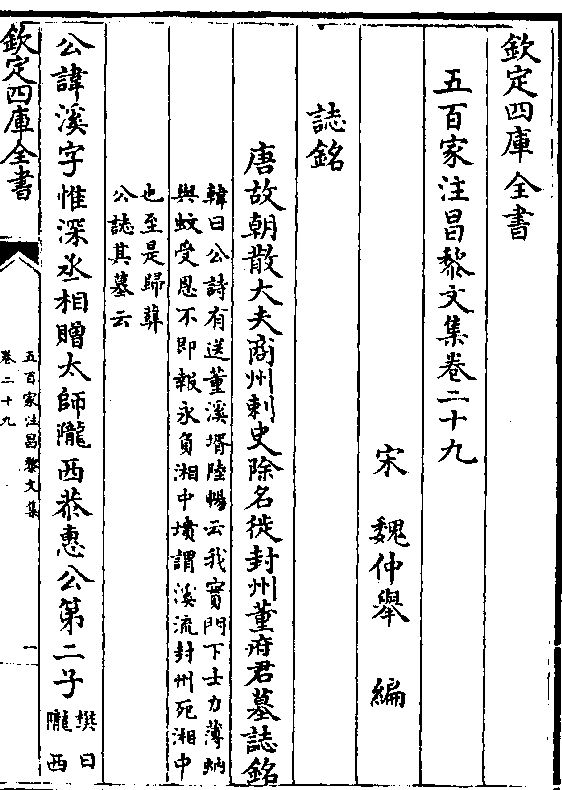 欽定四庫全書
五百家注昌黎文集卷二十九
宋 魏仲舉 編
誌銘
唐故朝散大夫商州刺史除名徙封州董府君墓誌銘
韓曰公詩有送董溪壻陸暢云我實門下士力薄蚋
與蚊受恩不即報永負湘中墳謂溪流封州死湘中
也至是歸葬
公誌其墓云
公諱溪字惟深丞相贈太師隴西恭惠公第二子
撰曰
隴西
欽定四庫全書
五百家注昌黎文集
卷二十九
一